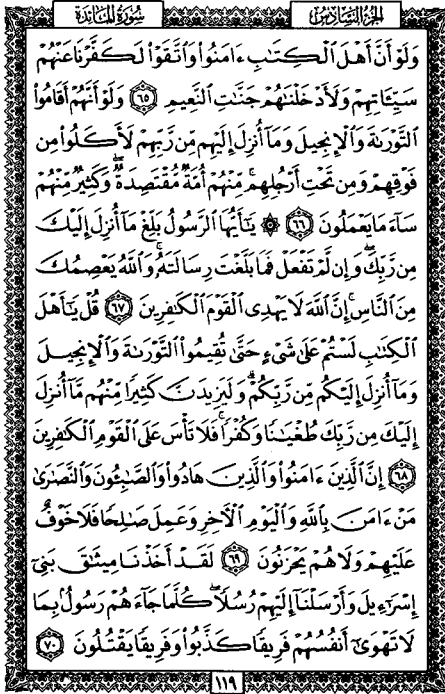 الجزء السادس سورة المائدة
وَلَوْ أَنَّ أَهْلَ ٱلْكِتَٰبِ ءَامَنُوا۟ وَٱتَّقَوْا۟ لَكَفَّرْنَا عَنْهُمْ
سَيِّـَٔاتِهِمْ وَلَأَدْخَلْنَٰهُمْ جَنَّٰتِ ٱلنَّعِيمِ ٦٥ وَلَوْ أَنَّهُمْ أَقَامُوا۟
ٱلتَّوْرَىٰةَ وَٱلْإِنجِيلَ وَمَآ أُنزِلَ إِلَيْهِم مِّن رَّبِّهِمْ لَأَكَلُوا۟ مِن
فَوْقِهِمْ وَمِن تَحْتِ أَرْجُلِهِم ۚ مِّنْهُمْ أُمَّةٌ مُّقْتَصِدَةٌ ۖ وَكَثِيرٌ مِّنْهُمْ
سَآءَ مَا يَعْمَلُونَ ٦٦ ۞ يَٰٓأَيُّهَا ٱلرَّسُولُ بَلِّغْ مَآ أُنزِلَ إِلَيْكَ
مِن رَّبِّكَ ۖ وَإِن لَّمْ تَفْعَلْ فَمَا بَلَّغْتَ رِسَالَتَهُۥ ۚ وَٱللَّهُ يَعْصِمُكَ
مِنَ ٱلنَّاسِ ۗ إِنَّ ٱللَّهَ لَا يَهْدِى ٱلْقَوْمَ ٱلْكَٰفِرِينَ ٦٧ قُلْ يَٰٓأَهْلَ
ٱلْكِتَٰبِ لَسْتُمْ عَلَىٰ شَىْءٍ حَتَّىٰ تُقِيمُوا۟ ٱلتَّوْرَىٰةَ وَٱلْإِنجِيلَ
وَمَآ أُنزِلَ إِلَيْكُم مِّن رَّبِّكُمْ ۗ وَلَيَزِيدَنَّ كَثِيرًا مِّنْهُم مَّآ أُنزِلَ
إِلَيْكَ مِن رَّبِّكَ طُغْيَٰنًا وَكُفْرًا ۖ فَلَا تَأْسَ عَلَى ٱلْقَوْمِ ٱلْكَٰفِرِينَ
٦٨ إِنَّ ٱلَّذِينَ ءَامَنُوا۟ وَٱلَّذِينَ هَادُوا۟ وَٱلصَّٰبِـُٔونَ وَٱلنَّصَٰرَىٰ
مَنْ ءَامَنَ بِٱللَّهِ وَٱلْيَوْمِ ٱلْءَاخِرِ وَعَمِلَ صَٰلِحًا فَلَا خَوْفٌ
عَلَيْهِمْ وَلَا هُمْ يَحْزَنُونَ ٦٩ لَقَدْ أَخَذْنَا مِيثَٰقَ بَنِىٓ
إِسْرَٰٓءِيلَ وَأَرْسَلْنَآ إِلَيْهِمْ رُسُلًا ۖ كُلَّمَا جَآءَهُمْ رَسُولٌۢ بِمَا
لَا تَهْوَىٰٓ أَنفُسُهُمْ فَرِيقًا كَذَّبُوا۟ وَفَرِيقًا يَقْتُلُونَ ٧٠
١١٩